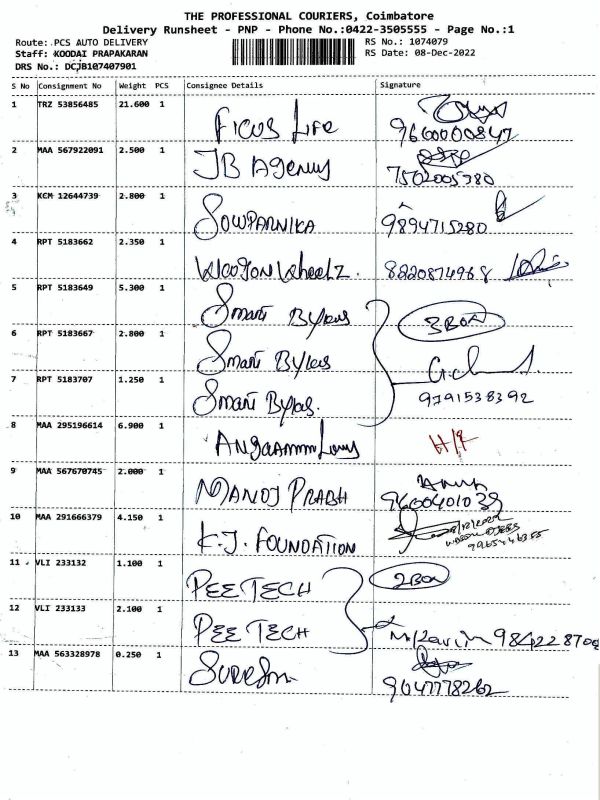 THE PROFESSIONAL COURIERS, Coimbatore
Delivery Runsheet - PNP - Phone No.:0422-3505555 - Page No.:1
Route: PCS AUTO DELIVERY RS No.: 1074079
Staff: KOODAI PRAPAKARAN RS Date: 08-Dec-2022
DRS No.: DCJB107407901
S No Consignment No Weight PCS Consignee Details Signature
1 TRZ 53856485 21.600 1 Ficus Life
9600000847
2 MAA 567922091 2.500 1 JB Agency
7502005780
3 KCM 12644739 2.800 1 SOWPARNIKA 9894715280
4 RPT 5183662 2.350 1 Wheelz. 8220874968
5 RPT 5183649 5.300 1 Smart Bytes 3 BOX
6 RPT 5183667 2.800 1 Smart Bytes
7 RPT 5183707 1.250 1 Smart Bytes. 9791538392
8 MAA 295196614 6.900 1
9 MAA 567670745 2.000 1 MANOJ PRABH 9600401039
10 MAA 291666379 4.150 1 K.J. FOUNDATION
11 VLI 233132 1.100 1 PEE TECH 2 BOX
12 VLI 233133 2.100 1 PEE TECH
13 MAA 563328978 0.250 1 Suresh.
9047778262